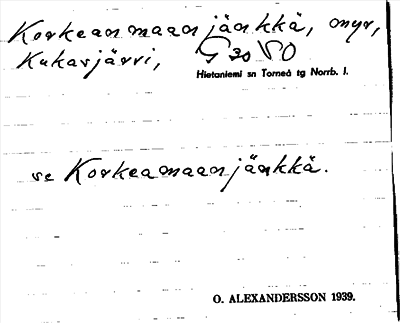 Korkeanmaanjänkkä, myr,
Kukasjärvi, G 30 NO
Hietaniemi sn Torneå tg Norrb. l.
se Korkeamaanjänkkä.
O. ALEXANDERSSON 1939.